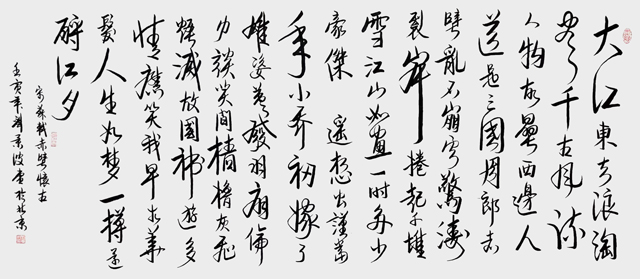 大江東去浪淘
盡千古風流
人物故壘西邊人
道是三國周郎赤
壁亂石崩雲驚濤
裂岸捲起千堆
雪江山如畫一時多少
豪傑 遥想公瑾當
年小喬初嫁了
雄姿英發羽扇綸
巾談笑間檣櫓灰飛
煙滅故國神遊多
情應笑我早生華
髮人生如夢一樽還
酹江月
宋蘇軾赤壁懷古
壬寅年書於北京